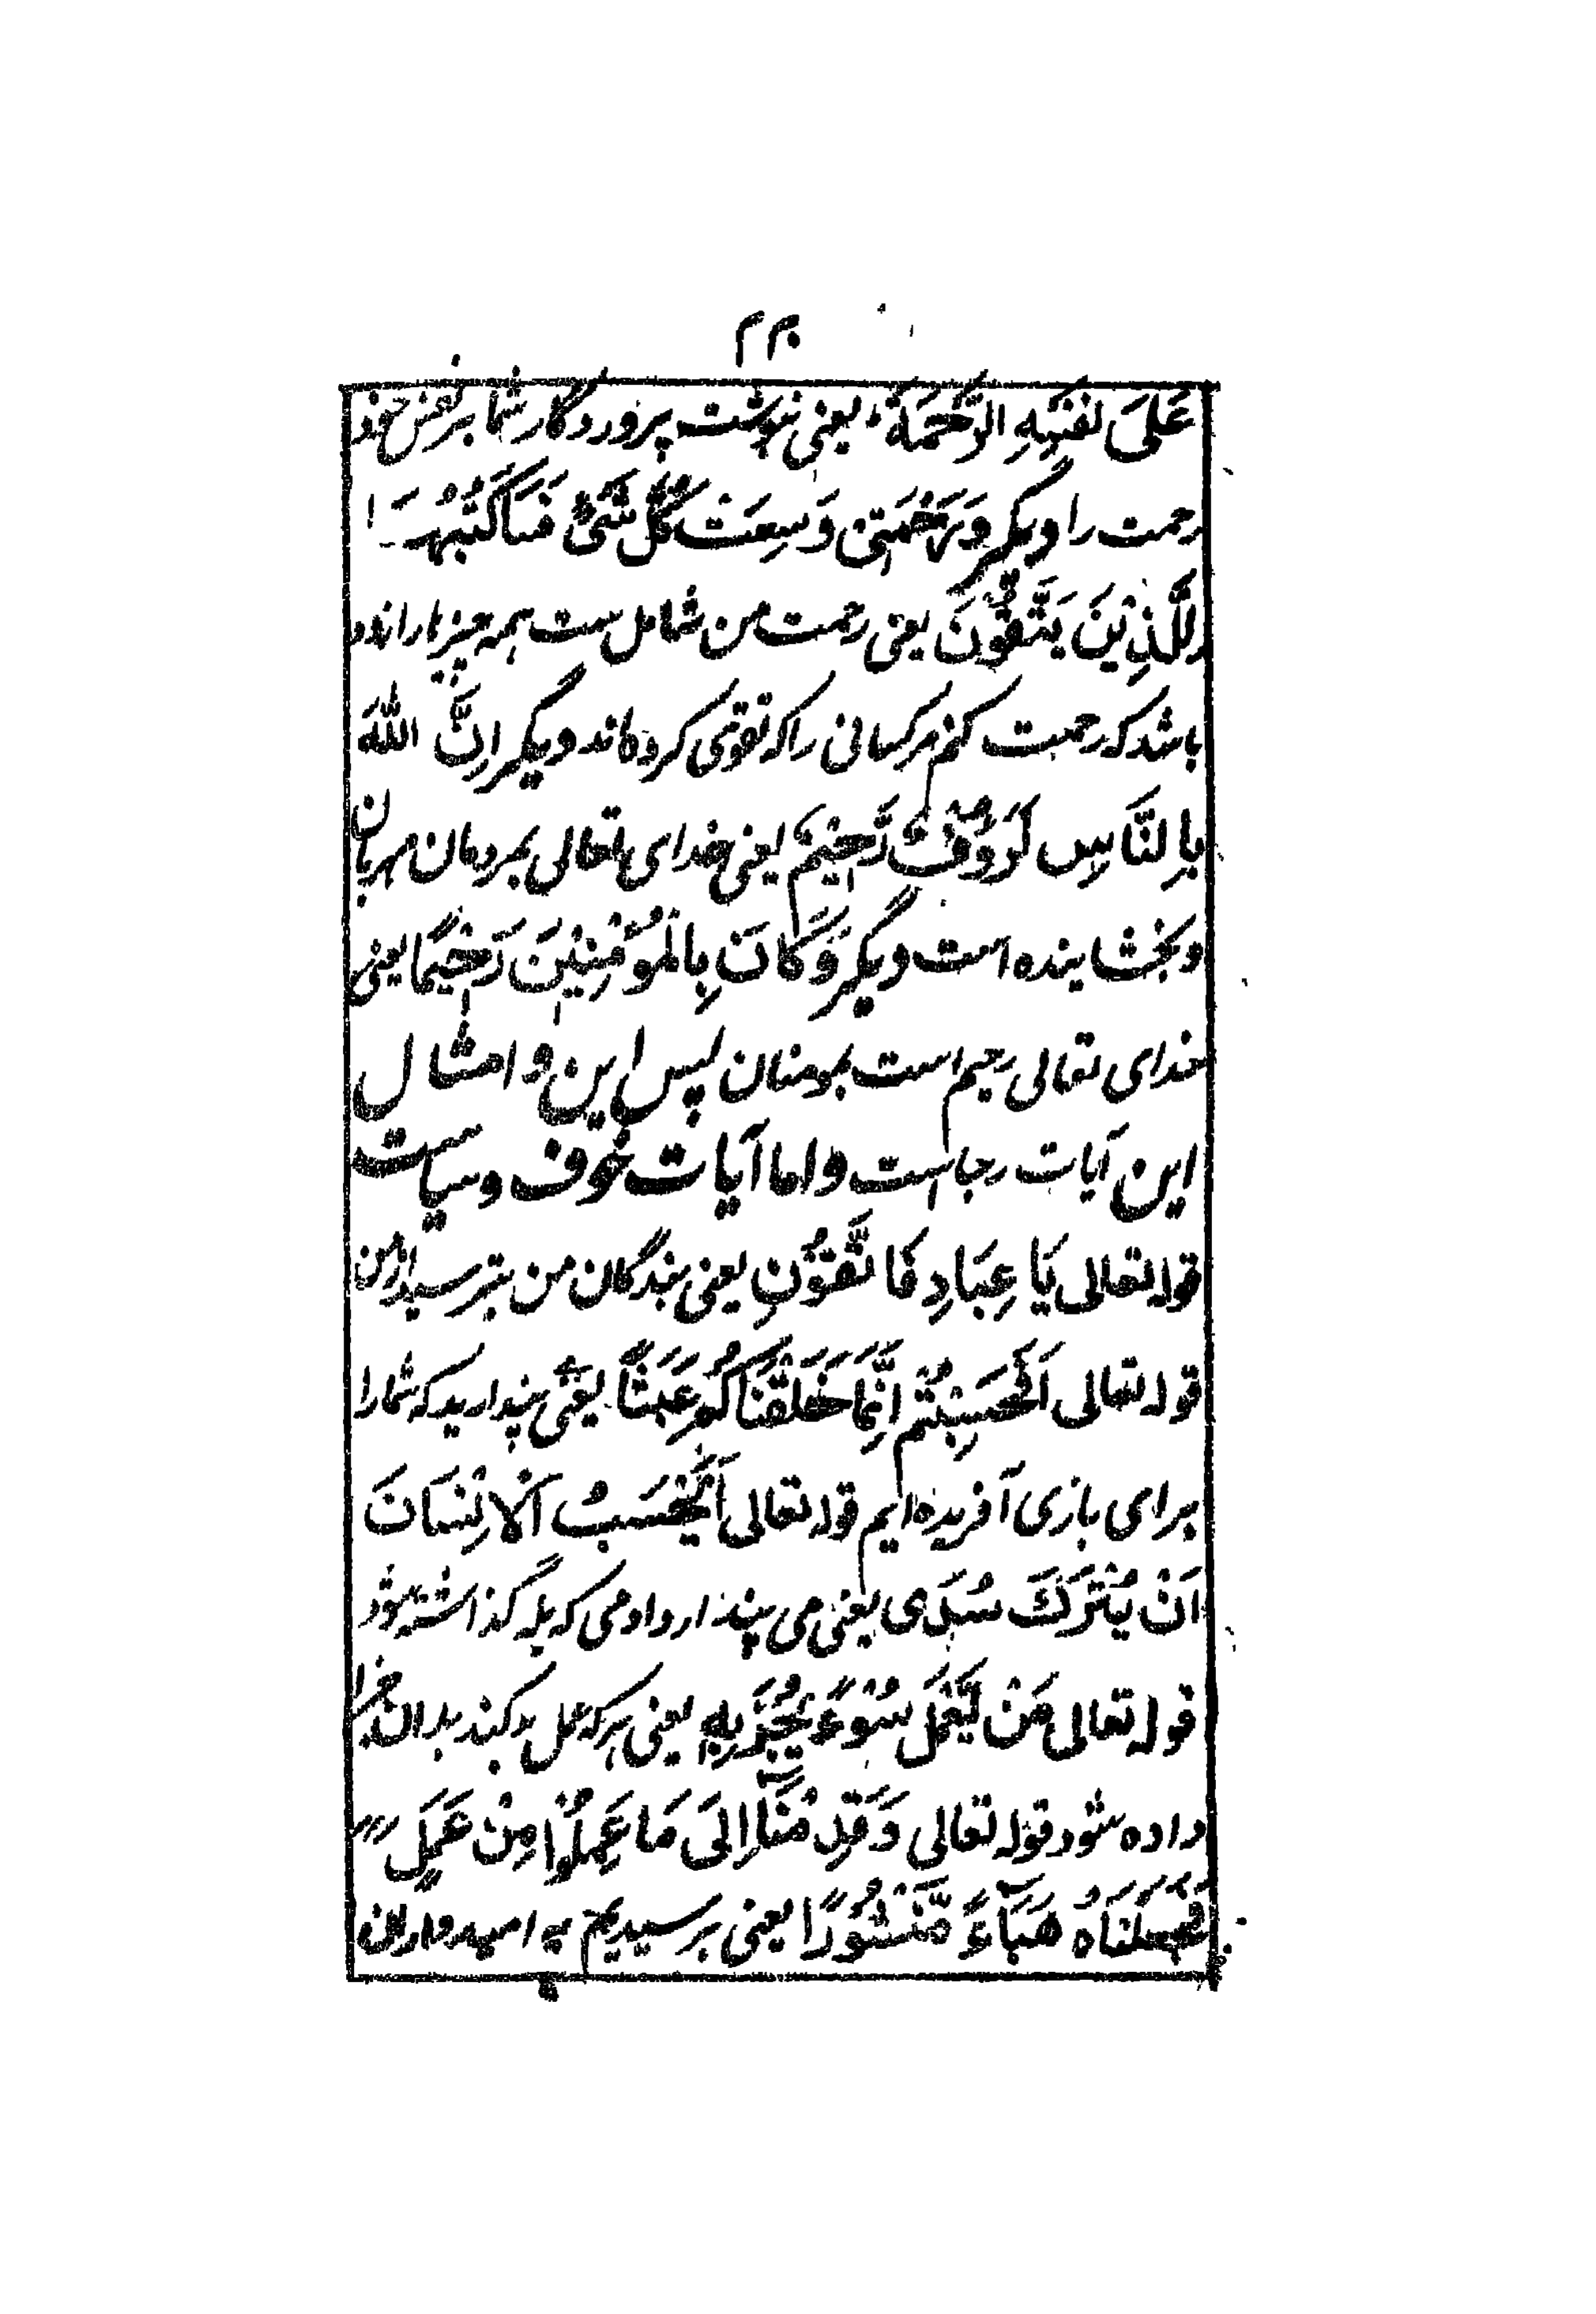 ۴۲
عَلَىٰ نَفْسِهِ الرَّحْمَةَ یعنی نوشت پروردگار شما بر نفس خود
رحمت را و دیگر وَرَحْمَتِیْ وَسِعَتْ كُلَّ شَیْءٍ فَسَاَكْتُبُهَا
لِلَّذِیْنَ یَتَّقُوْنَ یعنی رحمت من شامل ست همه چیز را
باشد که رحمت کنم مر کسانی را که تقوی کرده اند دیگر اِنَّ اللهَ
بِالنَّاسِ لَرَءُوْفٌ رَّحِیْمٌ یعنی خدای تعالی بمردمان مهربان
و بخشاینده است دیگر وَكَانَ بِالْمُؤْمِنِیْنَ رَحِیْمًا یعنی
خدای تعالی رحیم است بمومنان پس این و امثال
این آیات رجا ست و اما آیات خوف و سیاست
قوله تعالی یَا عِبَادِ فَاتَّقُوْنِ یعنی بندگان من بترسید از من
قوله تعالی اَفَحَسِبْتُمْ اَنَّمَا خَلَقْنَاكُمْ عَبَثًا یعنی پندارید که شما را
برای بازی آفریده ایم قوله تعالی اَیَحْسَبُ الْاِنْسَانَ
اَنْ یُّتْرَكَ سُدًی یعنی می پندارد آدمی که یله گذاشته شود
قوله تعالی مَنْ یَّعْمَلْ سُوْءً یُّجْزَ بِهٖ یعنی هر که عمل بد کند بدان جزا
داده شود قوله تعالی وَقَدِمْنَا اِلَىٰ مَا عَمِلُوْا مِنْ عَمَلٍ
فَجَعَلْنَاهُ هَبَآءً مَّنْثُوْرًا یعنی برسیدیم به امیدواران